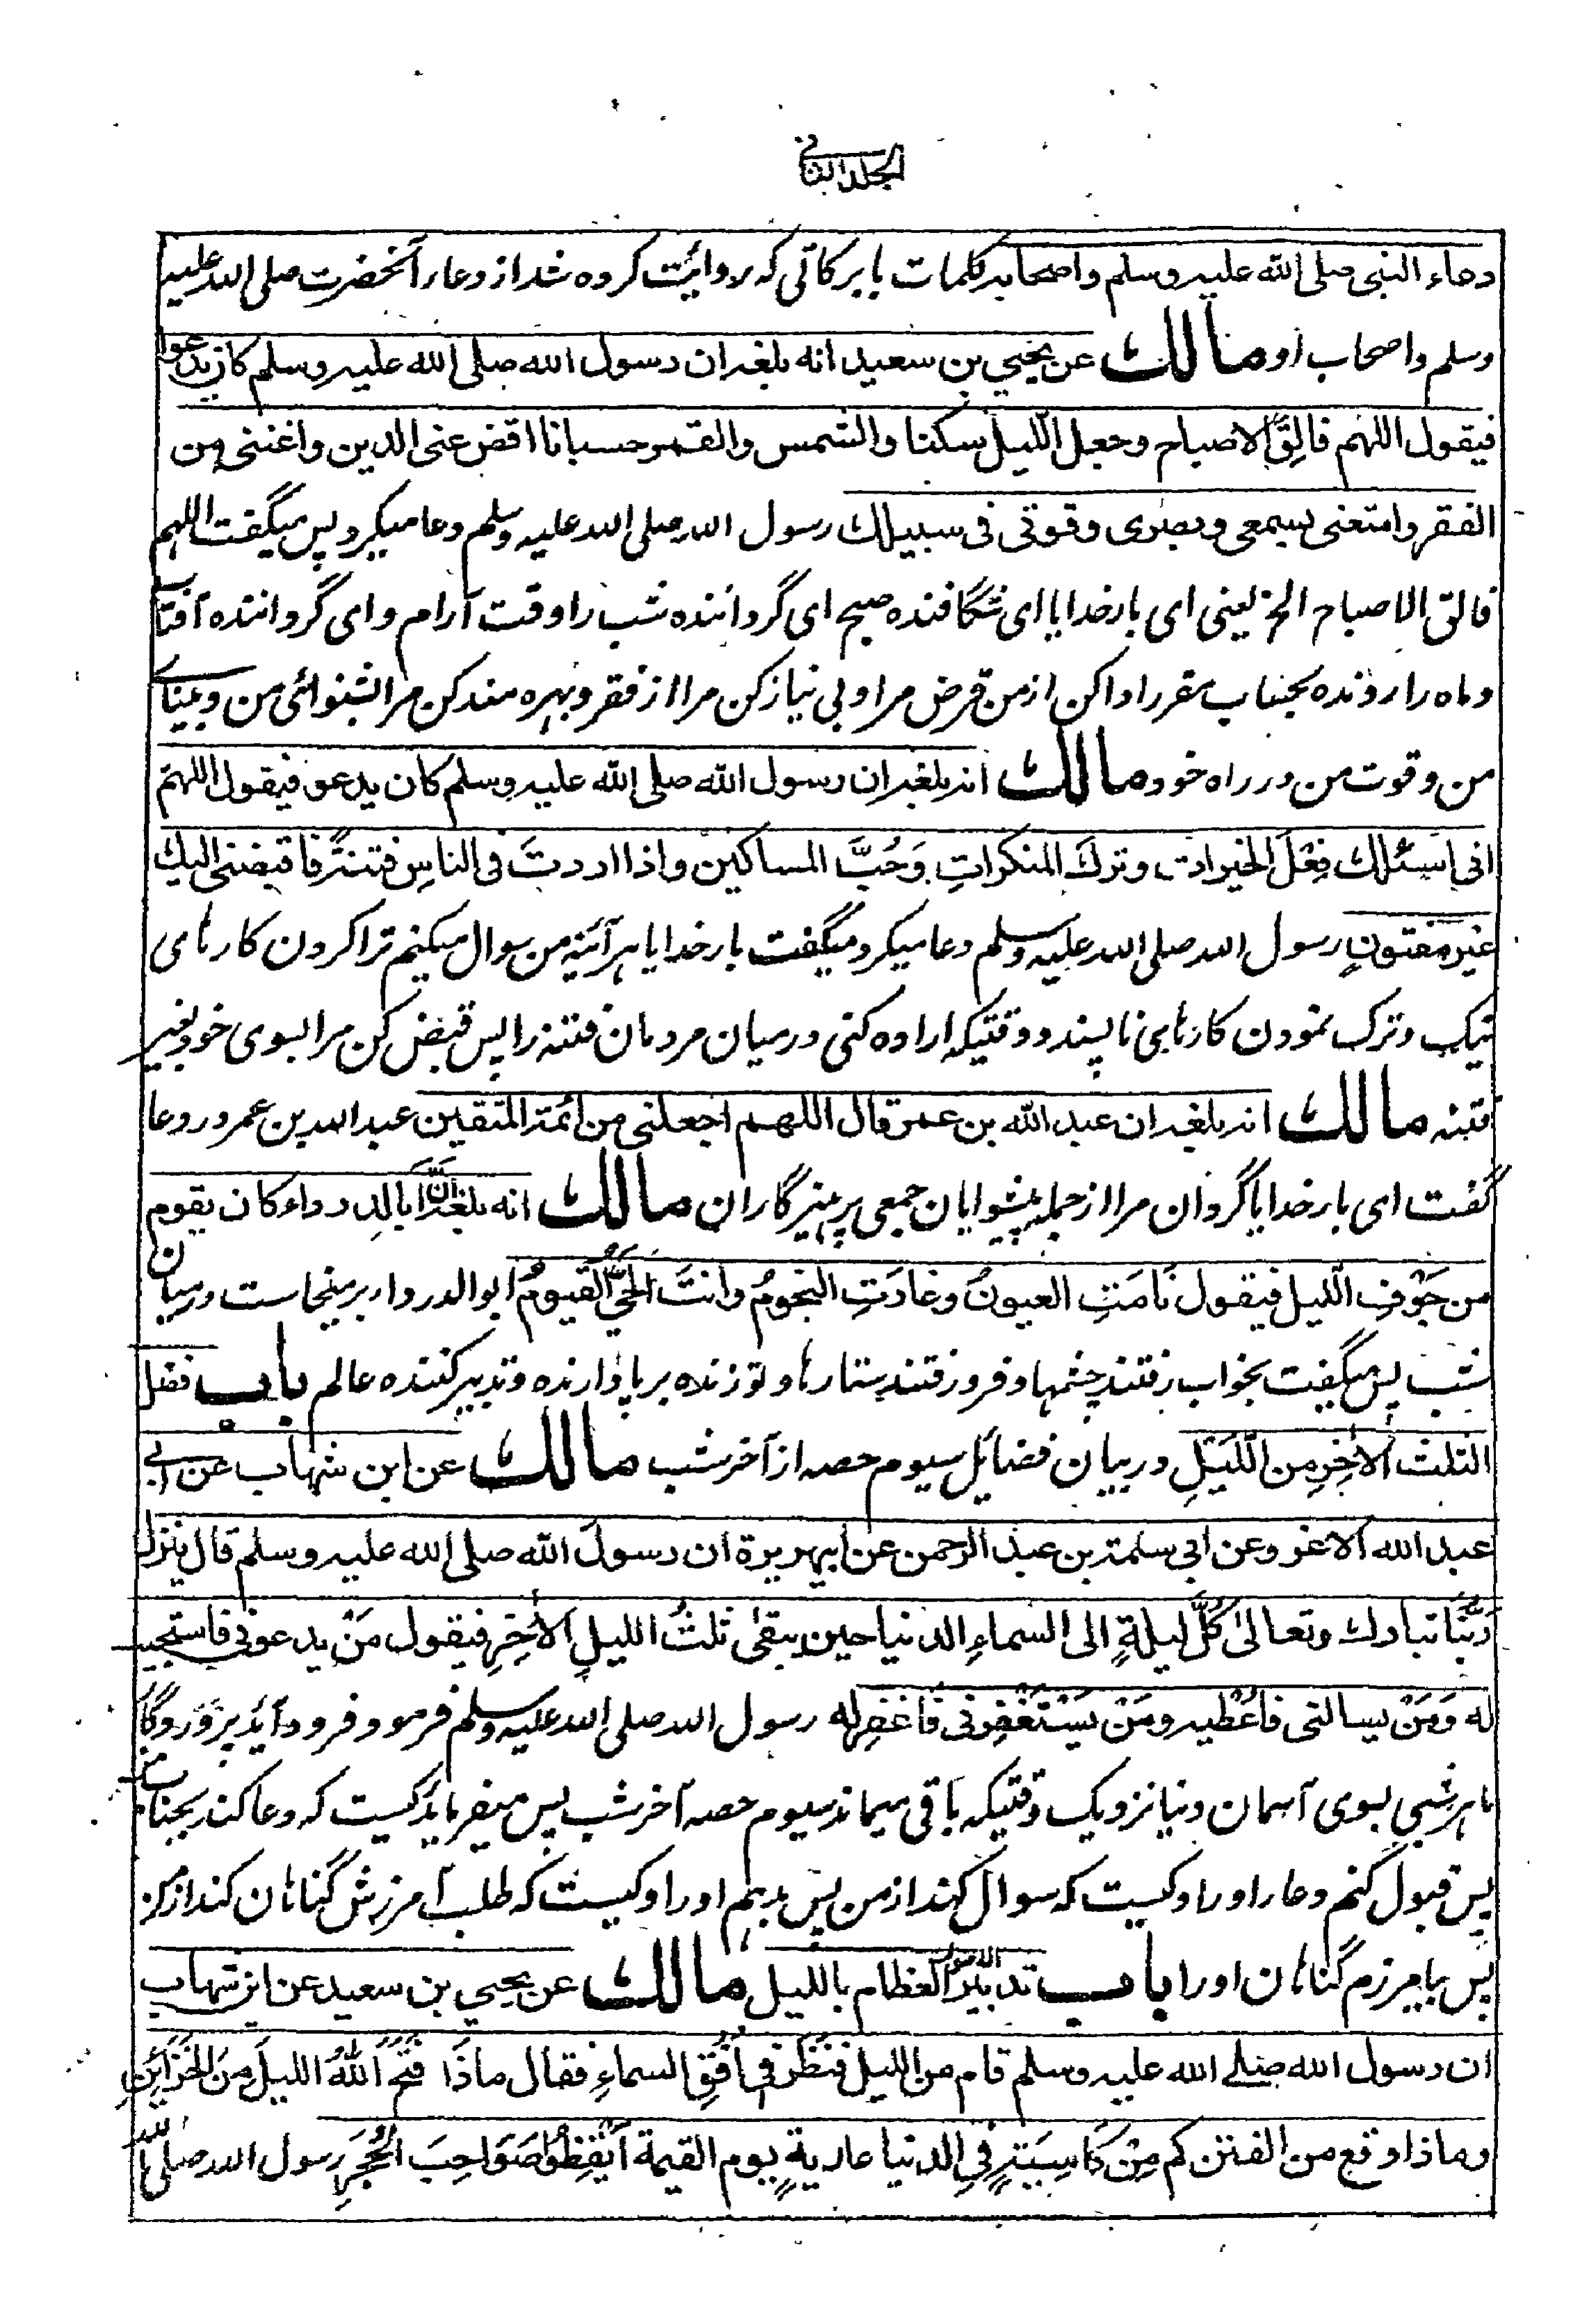 الجلد الثانی
دعاء النبی صلی الله علیه وسلم واصحابه کلمات بابرکاتی که روایت کرده شد از دعاء آنحضرت صلی الله علیه
وسلم واصحاب او مالك عن یحیی بن سعید انه بلغه ان رسول الله صلی الله علیه وسلم کان یدعوا
فیقول اللهم فالِقَ الاصباح وجعل اللّیل سکنا والشمس والقمر حسبانا اقض عنی الدین واغننی من
الفقر وامتعنی بسمعی وبصری وقوتی فی سبیلك رسول الله صلی الله علیه وسلم دعا میکرد پس میگفت اللهم
فالق الاصباح الخ یعنی ای بار خدایا ای شگافنده صبح ای گرداننده شب را وقت آرام و ای گرداننده آفتاب
وماه را رونده بحساب مقرر ادا کن از من قرض مرا و بی نیاز کن مرا از فقر و بهره مند کن مرا بشنوائی من و بینائے
من و قوت من در راه خود مالك انه بلغه ان رسول الله صلی الله علیه وسلم کان یدعو فیقول اللهم
انی اسئلك فِعْلَ الخیرات وترك المنکراتِ وَحُبَّ المساکین واذا اردتَ فی الناسِ فتنةً فاقبضنی الیك
غیر مفتونٍ رسول الله صلی الله علیه وسلم دعا میکرد میگفت بار خدایا هر آئینه من سوال میکنم ترا کردن کارهای
نیک و ترک نمودن کارهای ناپسند و وقتیکه اراده کنی درمیان مردمان فتنه را پس قبض کن مرا بسوی خود بغیر
فتنه مالك انه بلغه ان عبد الله بن عمر قال اللهم اجعلنی من ائمة المتقین عبد الله بن عمر در دعا
گفت ای بار خدایا گردان مرا از جمله پیشوایان جمعی پرهیزگاران مالك انه بلغه انّ ابا الدرداء کان یقوم
من جَوْفِ اللّیل فیقول نَامَتِ العیونُ وغارَتِ النجومُ وانتَ الحیُّ القیومُ ابو الدرداء برمیخاست درمیان
شب پس میگفت بخواب رفتند چشمها و فرو رفتند ستارها و تو زنده برپا دارنده و تدبیر کننده عالم باب فضل
الثلث الاٰخِرِ من اللّیلِ در بیان فضایل سیوم حصه از آخر شب مالك عن ابن شهاب عن ابی
عبد الله الاغر وعن ابی سلمة بن عبد الرحمن عن ابیهریرة ان رسولَ الله صلی الله علیه وسلم قال ینزل
رَبُّنَا تبارك وتعالیٰ کُلَّ لیلةٍ الی السماءِ الدنیا حین یبقیٰ ثلثُ اللیلِ الاٰخِرِ فیقول مَنْ یدعونی فاستجیب
له وَمَنْ یسالنی فاُعْطیه ومَنْ یَسْتَغْفِرنی فَاَغفِر له رسول الله صلی الله علیه وسلم فرمود فرود آید پروردگار
ما هر شبی بسوی آسمان دنیا نزدیک وقتیکه باقی میماند سیوم حصه آخر شب پس میفرماید کیست که دعا کند بجناب من
پس قبول کنم دعاء او را و کیست که سوال کند از من پس بدهم او را و کیست که طلب آمرزش گناهان کند از من
پس بیامرزم گناهان او را باب تدبیر الامور العظام باللیل مالك عن یحیی بن سعید عن ابن شهاب
ان رسول الله صلے الله علیه وسلم قام من اللیل فنَظَرَ فی اُفُقِ السماءِ فقال ماذَا فَتَحَ اللهُ اللیلَ مِنَ الخَزَائِنِ
وماذا وقع من الفتن کم مِنْ کَاسِیَةٍ فی الدنیا عاریةٍ یوم القیٰمة اَیْقِظُوا صَوَاحِبَ الحُجَرِ رسول الله صلی الله